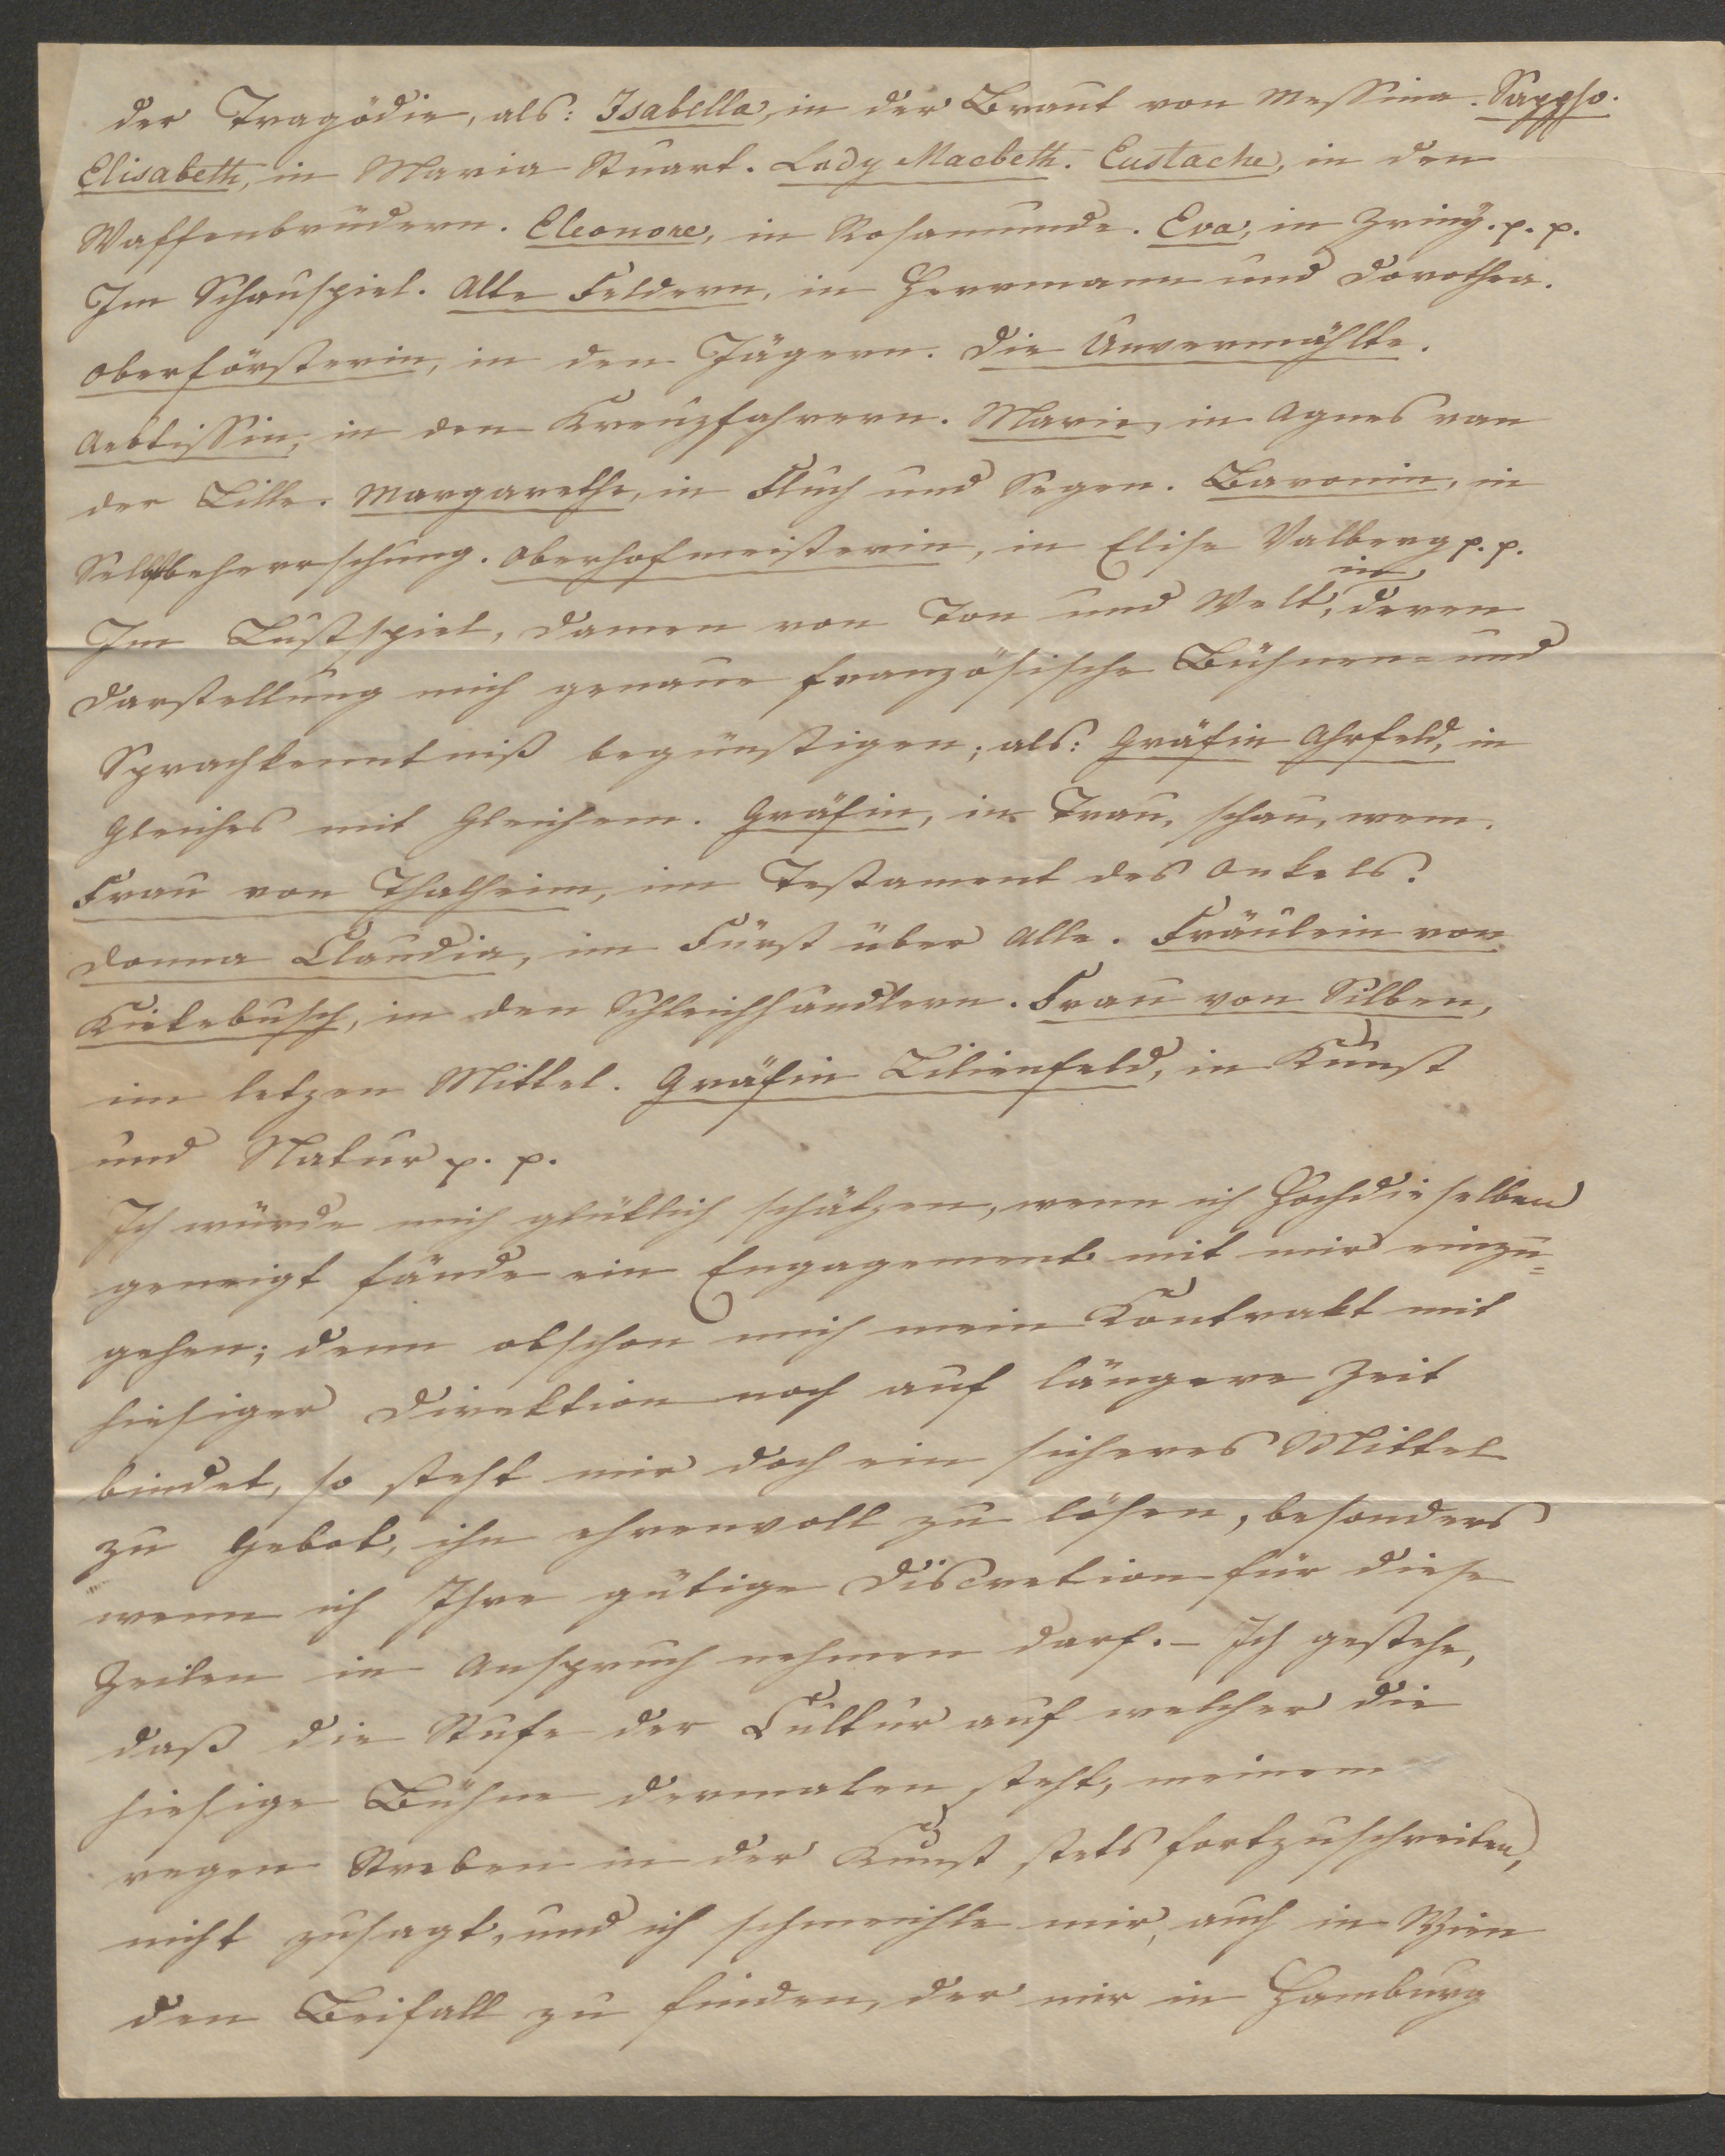 der Tragödie, als: Isabella, in der Braut von Messina. Sappho.
Elisabeth, in Maria Stuart. Lady Macbeth. Eustache, in den
Waffenbrüdern. Eleonore, in Rosamunde. Eva, in Zriny. p. p.
Im Schauspiel. Alte Feldern, in Herrmann und Dorothea.
Oberförsterin, in den Jägern. Die Unvermählte.
Aebtissin, in den Kreuzfahrern. Marie, in Agnes van
der Lille. Margarethe, in Fluch und Segen. Baronin, in
Selbstbeherrschung. Oberhofmeisterin, in Elise Valberg p. p.
Im Lustspiel, Damen von Ton und Welt, in deren
Darstellung mich genaue französische Bühnen= und
Sprachkenntniß begünstigen; als: Gräfin Ahrfeld, in
Gleiches mit Gleichem. Gräfin, in Trau, schau, wem.
Frau von Thalheim, im Testament des Onkels.
Donna Claudia, im Fürst über Alle. Fräulein von
Kiekebusch, in den Schleichhändlern. Frau von Silben,
im letzen Mittel. Gräfin Lilienfeld, in Kunst
und Natur p. p.
Ich würde mich glüklich schätzen, wenn ich Hochdieselben
geneigt fände ein Engagement mit mir einzu=
gehen; denn obschon mich mein Kontrakt mit
hiesiger Direktion noch auf längere Zeit
bindet, so steht mir doch ein sicheres Mittel
zu Gebot, ihn ehrenvoll zu lösen, besonders
wenn ich Ihre gütige Discretion für diese
Zeilen in Anspruch nehmen darf. – Ich gestehe,
daß die Stufe der Cultur auf welcher die
hiesige Bühne dermalen steht, meinem
regen Streben in der Kunst stets fortzuschreiten,
nicht zusagt, und ich schmeichle mir, auch in Wien
den Beifall zu finden, der mir in Hamburg